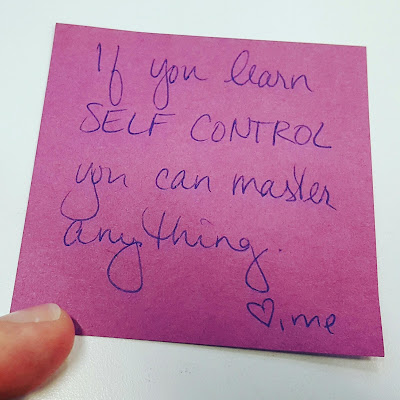 If you learn
SELF CONTROL
you can master
anything.
♡, me